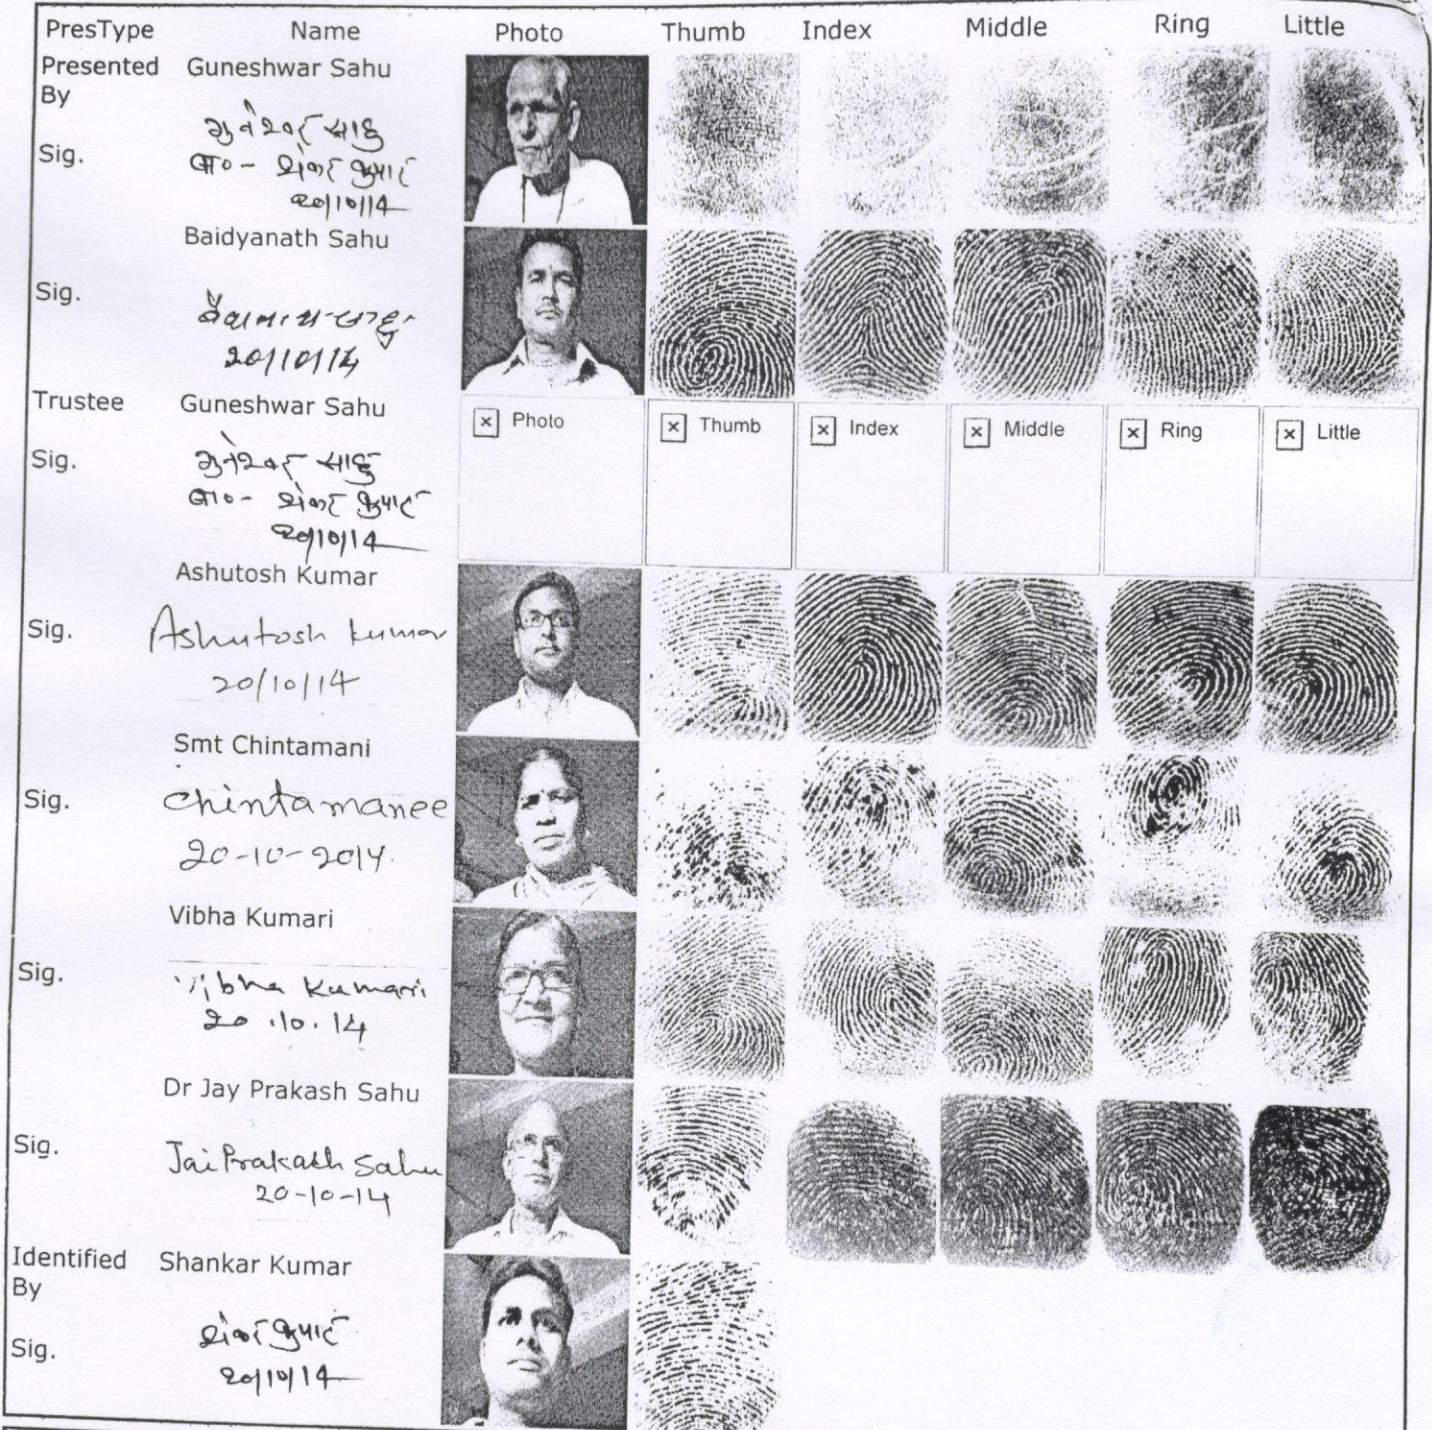 PresType Name Photo Thumb Index Middle Ring Little
Presented By Guneshwar Sahu
गुनेश्वर साहु
Sig. बा०- शंकर कुमार
20/10/14
Baidyanath Sahu
Sig. वैद्यनाथ साहु
20/10/14
Trustee Guneshwar Sahu
Photo Thumb Index Middle Ring Little
Sig. गुनेश्वर साहु
बा०- शंकर कुमार
20/10/14
Ashutosh Kumar
Sig. Ashutosh Kumar
20/10/14
Smt Chintamani
Sig. Chintamanee
20-10-2014
Vibha Kumari
Sig. Vibha Kumari
20.10.14
Dr Jay Prakash Sahu
Sig. Jai Prakash Sahu
20-10-14
Identified By Shankar Kumar
Sig. शंकर कुमार
20/10/14